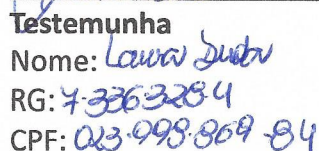 Testemunha
Nome: Laura Dudu
RG: 7.336328-4
CPF: 023.998.869-84